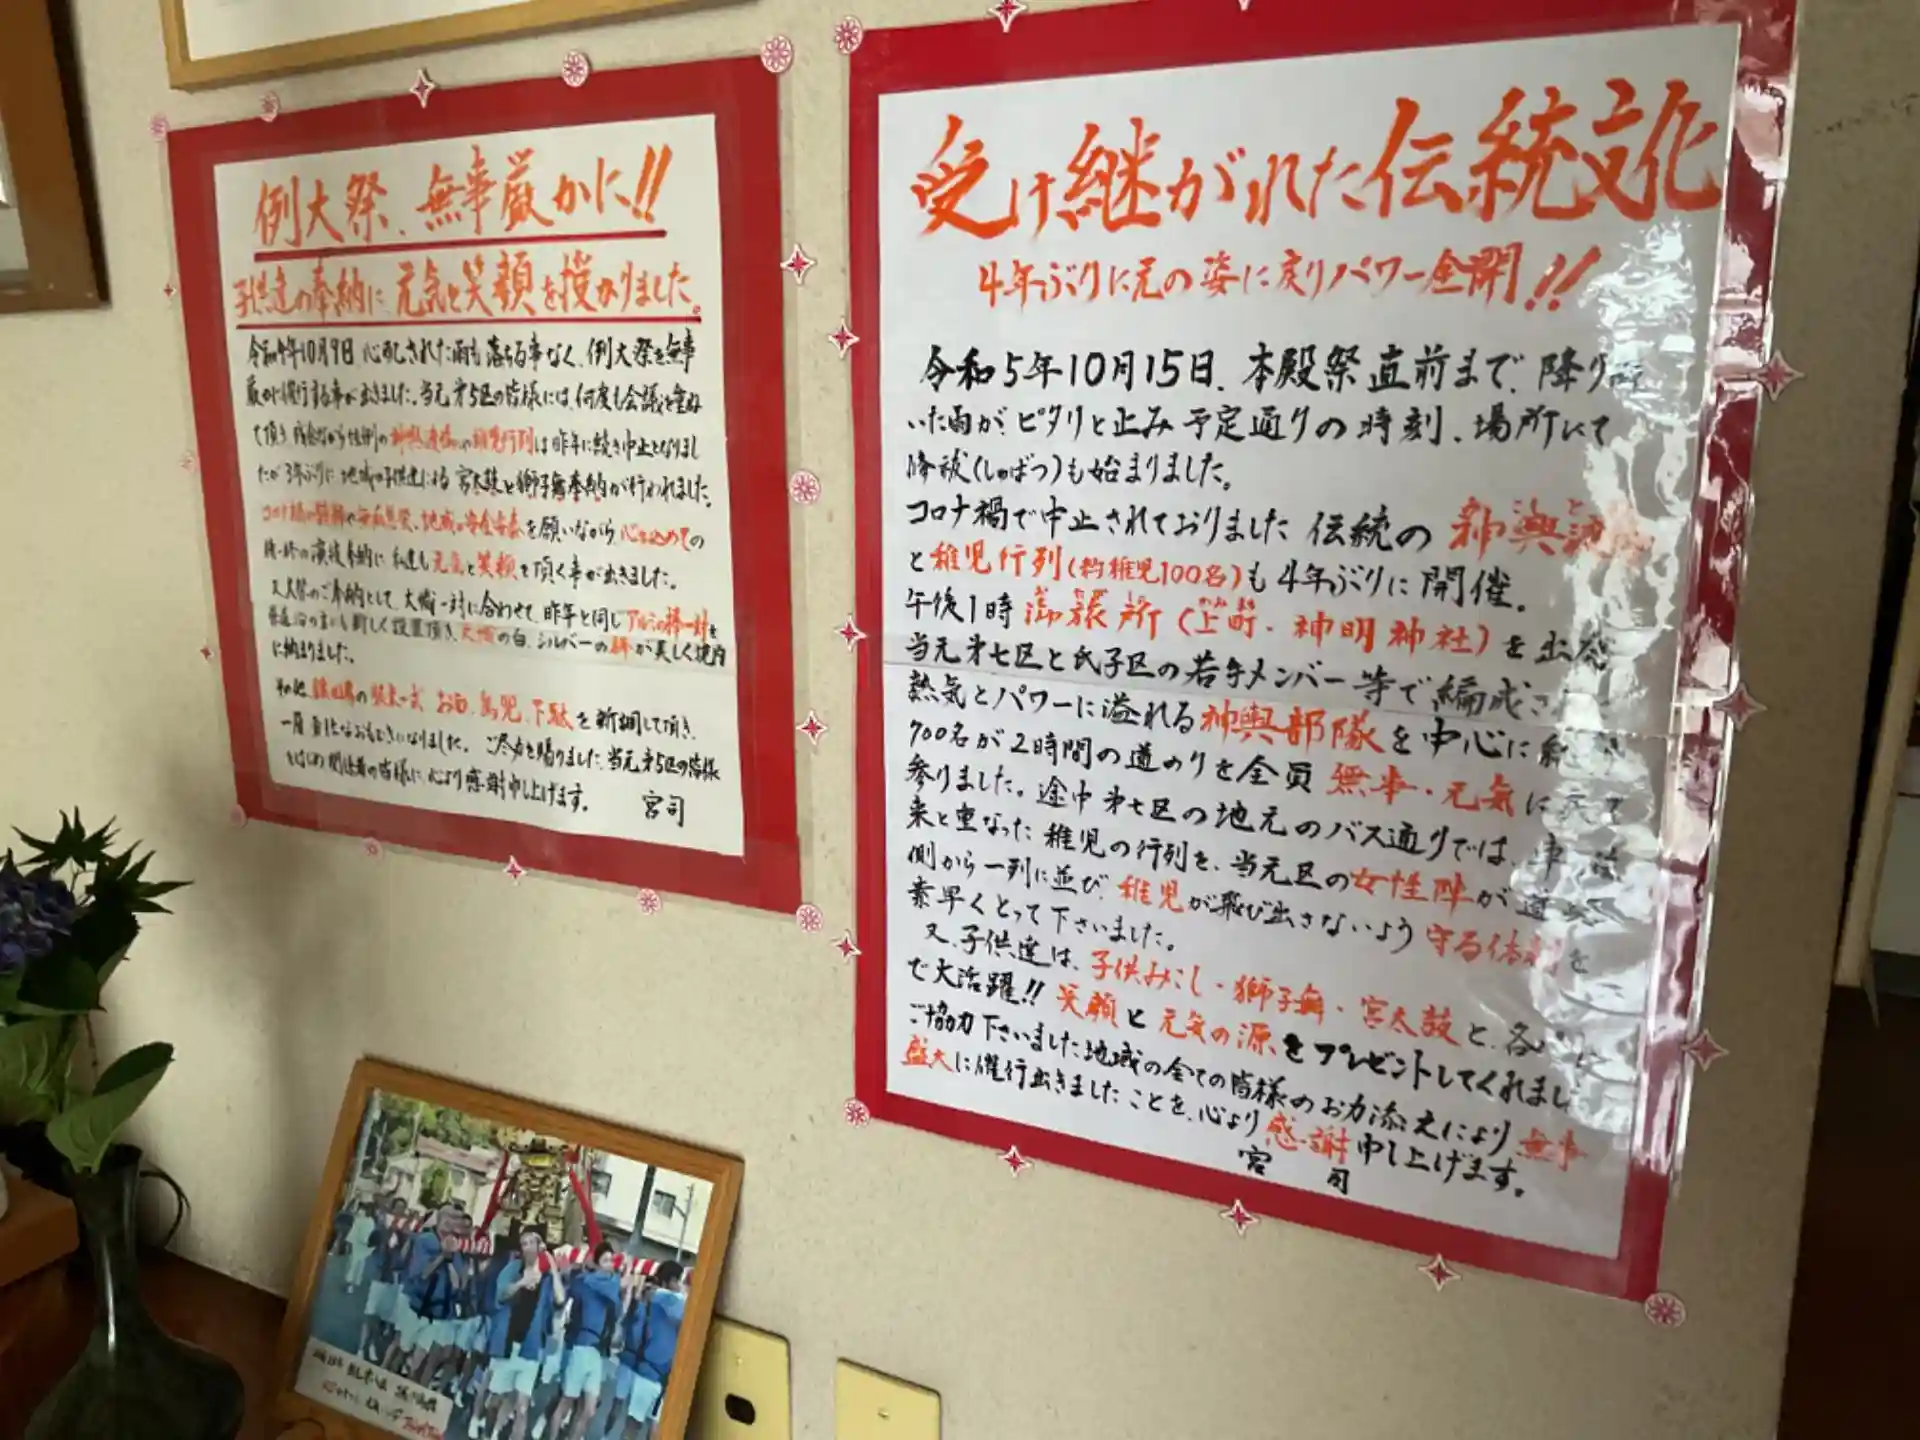 例大祭、無事厳かに!!
子供達の奉納に元気と笑顔を授かりました。
令和4年10月9日、心配された雨も落ちる事なく、例大祭を無事
厳かに執行する事が出きました。当元第5区の皆様には、何度も会議を重ね
て頂き、残念ながら恒例の神輿渡御、稚児行列は昨年に続き中止となりまし
たが3年ぶりに地域の子供達による宮太鼓と獅子舞奉納が行われました。
コロナ禍の 地域の安全安泰を願いながら、心を込めての
演技奉納に、私達も元気と笑顔を頂く事が出きました。
又、大祭のご奉納として、大幟一対に合わせて、昨年と同じアルミの棒一対を
も新しく設置頂き、大幟の白、シルバーの棒が美しく境内
に納まりました。
その他、 お面、 下駄を新調して頂き、
一層 なりました。ご尽力を賜りました、当元第5区の皆様
をはじめ関係者の皆様に、心より感謝申し上げます。
宮司
受け継がれた伝統文化
4年ぶりに元の姿に戻りパワー全開!!
令和5年10月15日、本殿祭直前まで、降り
いた雨が、ピタリと止み予定通りの時刻、場所にて
修祓(しゅばつ)も始まりました。
コロナ禍で中止されておりました 伝統の 神輿渡
と稚児行列(約稚児100名)も4年ぶりに開催。
午後1時 御旅所(上町・神明神社)を出発
当元第七区と氏子区の若手メンバー等で編成さ
熱気とパワーに溢れる神輿部隊を中心に総勢
700名が2時間の道のりを全員 無事・元気に
参りました。途中第七区の地元のバス通りでは、車
来と重なった稚児の行列を、当元区の女性陣が道
側から一列に並び、稚児が飛び出さないよう守る体制を
素早くとって下さいました。
又、子供達は、子供みこし・獅子舞・宮太鼓と、各
で大活躍!! 笑顔と元気の源をプレゼントしてくれまし
ご協力下さいました地域の全ての皆様のお力添えにより無事
盛大に催行出きましたことを、心より感謝申し上げます。
宮 司